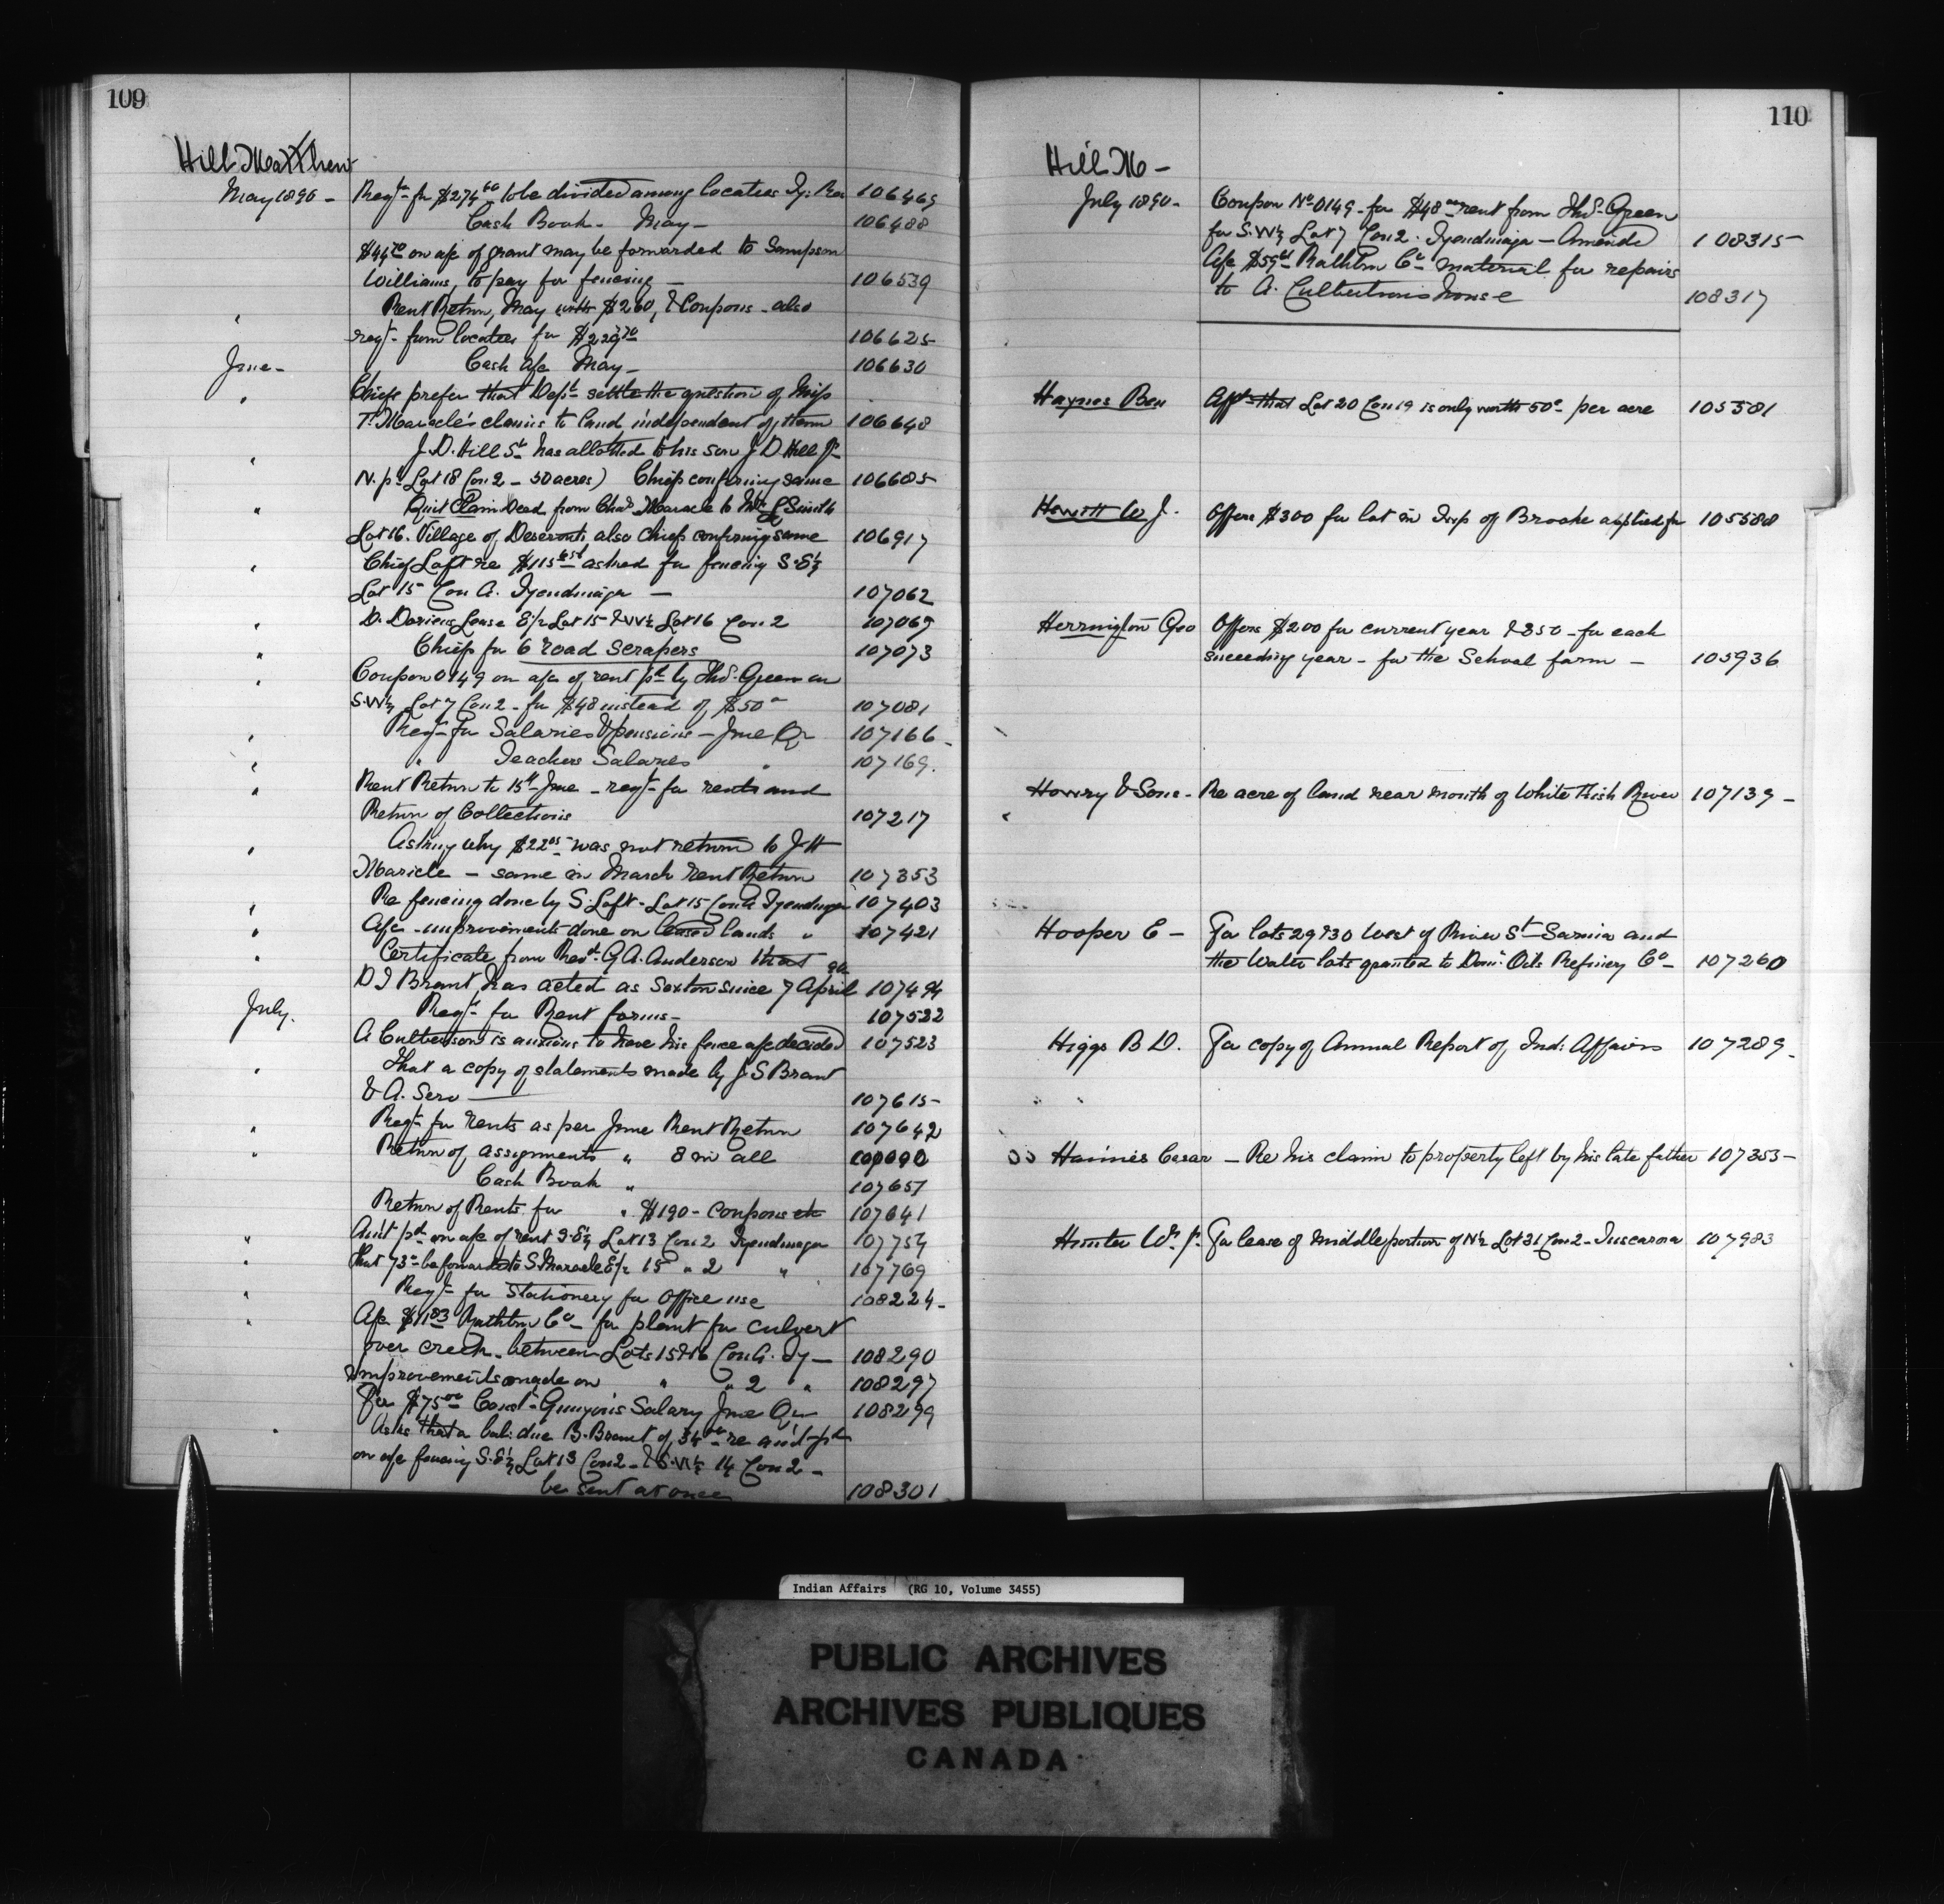 109
Hill Matthew
May 1890 - Reqn for $274 60 to be divided among locatees Ty: Res 106469
Cash Book - May - 106488
$44 70 on a/c of grant may be forwarded to Sampson
Williams, to pay for fencing - 106539
" Rent Return, May with $260, & Coupons - also
reqn from locatees for 106625
June - Cash a/c May - 106630
" Chiefs prefer that Dept settle the question of Miss
T. Maracle's claims to land independent of them 106648
" J. D. Hill Sr has allotted to his son J. D. Hill Jr
N. pt Lot 18 Con 2 - 50 acres) Chiefs confirming same 106685
" Quit Claim Deed from Chas Maracle to L Smith
Lot 16. Village of Deseronto also Chiefs confirming same 106917
" Chief Loft re asked for fencing S.E½
Lot 15 Con A. Tyendinaga - 107062
" D. Dorien Lease E½ Lot 15 & W½ Lot 16 Con 2 107069
" Chiefs for 6 road scrapers 107073
" Coupon 0149 on a/c of rent pd by Thos. Green on
S.W½ Lot 7 Con 2 - for $48 instead of $50 - 107081
" Reqn for Salaries & pensions - June Qr 107166 -
" " Teachers Salaries " 107169.
" Rent Return to 15th June - reqn for rents and
Return of Collections 107217
" Asking why $22 05 was not return to J. H
Maricle - same in March Rent Return 107353
" Re fencing done by S. Loft - Lot 15 Con A Tyendinaga 107403
" A/c - improvements done on leased lands " 107421
" Certificate from Revd. G A. Anderson that
D I Brant has acted as Sexton since 7 April 107494
July. Reqn for Rent forms - 107522
A Culbertson is anxious to have his fence a/c decided 107523
" That a copy of statements made by J. S Brant
& A. Sero 107615 -
" Reqn for rents as per June Rent Return 107642
" Return of assignments " 8 in all
Cash Book " 107657
Return of Rents for " $190 - coupons etc 107641
" Am't pd on a/c of rent S.E½ Lot 13 Con 2 Tyendinaga 107754
" That 73 - be forwarded to S. Maracle E½ 15 " 2 " 107769
" Reqn for Stationery for Office use 108224 -
" A/c $11 83 Rathbun Co - for plank for culvert
over creek - between Lots 15 & 16 Con A. Ty - 108290
Improvements made on " " 2 " 108297
For $75 00 Const. Gunyon's Salary June Qr 108299
" Asks that a bal: due B. Brant of re am't pd
on a/c fencing S.E½ Lot 13 Con 2 - & S.W½ 14 Con 2 -
be sent at once 108301
110
Hill M -
July 1890 - Coupon No 0149 - for $48 rent from Thos. Green
for S.W½ Lot 7 Con 2. Tyendinaga - Amends 108315 -
A/c Rathbun Co - material for repairs
to A. Culbertson's house 108317
Haynes Ben Affts that Lot 20 Con 19 is only worth 50c per acre 105581
Howitt W J. Offers $300 for lot in Tsp of Brooke applied for 105588
Herrington Geo Offers $200 for current year & 250 - for each
succeeding year - for the School farm - 105936
Howry & Sons - Re acre of land near mouth of White Fish River 107139 -
Hooper E - For lots 29 & 30 West of River St - Sarnia and
the Water lots granted to Dom: Oils Refinery Co - 107260
Higgs B D. For copy of Annual Report of Ind: Affairs 107289 -
Haines Cesar - Re his claim to property left by his late father 107353 -
Hunter Wm Jr. For lease of middle portion of N½ Lot 31 Con 2 - Tuscarora 107983
Indian Affairs (RG 10, Volume 3455)
PUBLIC ARCHIVES
ARCHIVES PUBLIQUES
CANADA